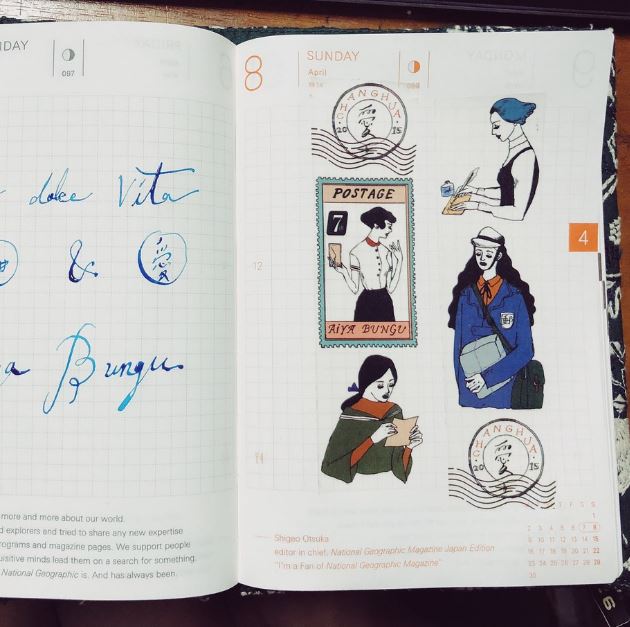 DAY
097
dolce Vita
& 愛
Bungu
more and more about our world.
d explorers and tried to share any new expertise
rograms and magazine pages. We support people
uisitive minds lead them on a search for something.
National Geographic is. And has always been.
8
SUNDAY
April
098
CHANGHUA
20 愛 15
POSTAGE
7
AIYA BUNGU
12
4
CHANGHUA
20 愛 15
Shigeo Otsuka
editor in chief, National Geographic Magazine Japan Edition
"I'm a Fan of National Geographic Magazine"
F S S
1
2 3 4 5 6 7 8
9 10 11 12 13 14 15
16 17 18 19 20 21 22
23 24 25 26 27 28 29
30